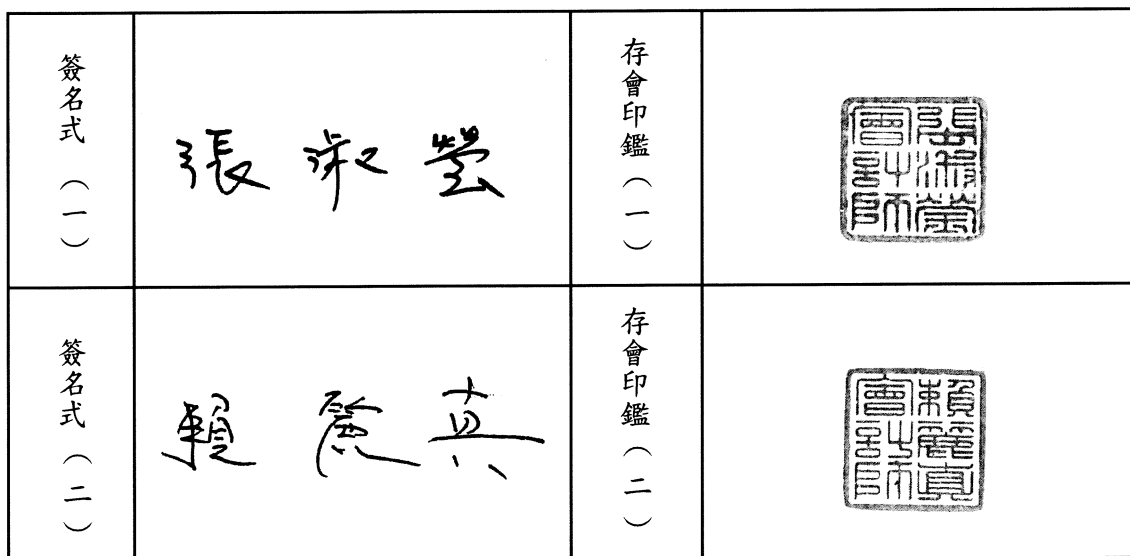 簽名式（一）
張淑瑩
存會印鑑（一）
張淑瑩
會計師
簽名式（二）
賴麗真
存會印鑑（二）
賴麗真
會計師